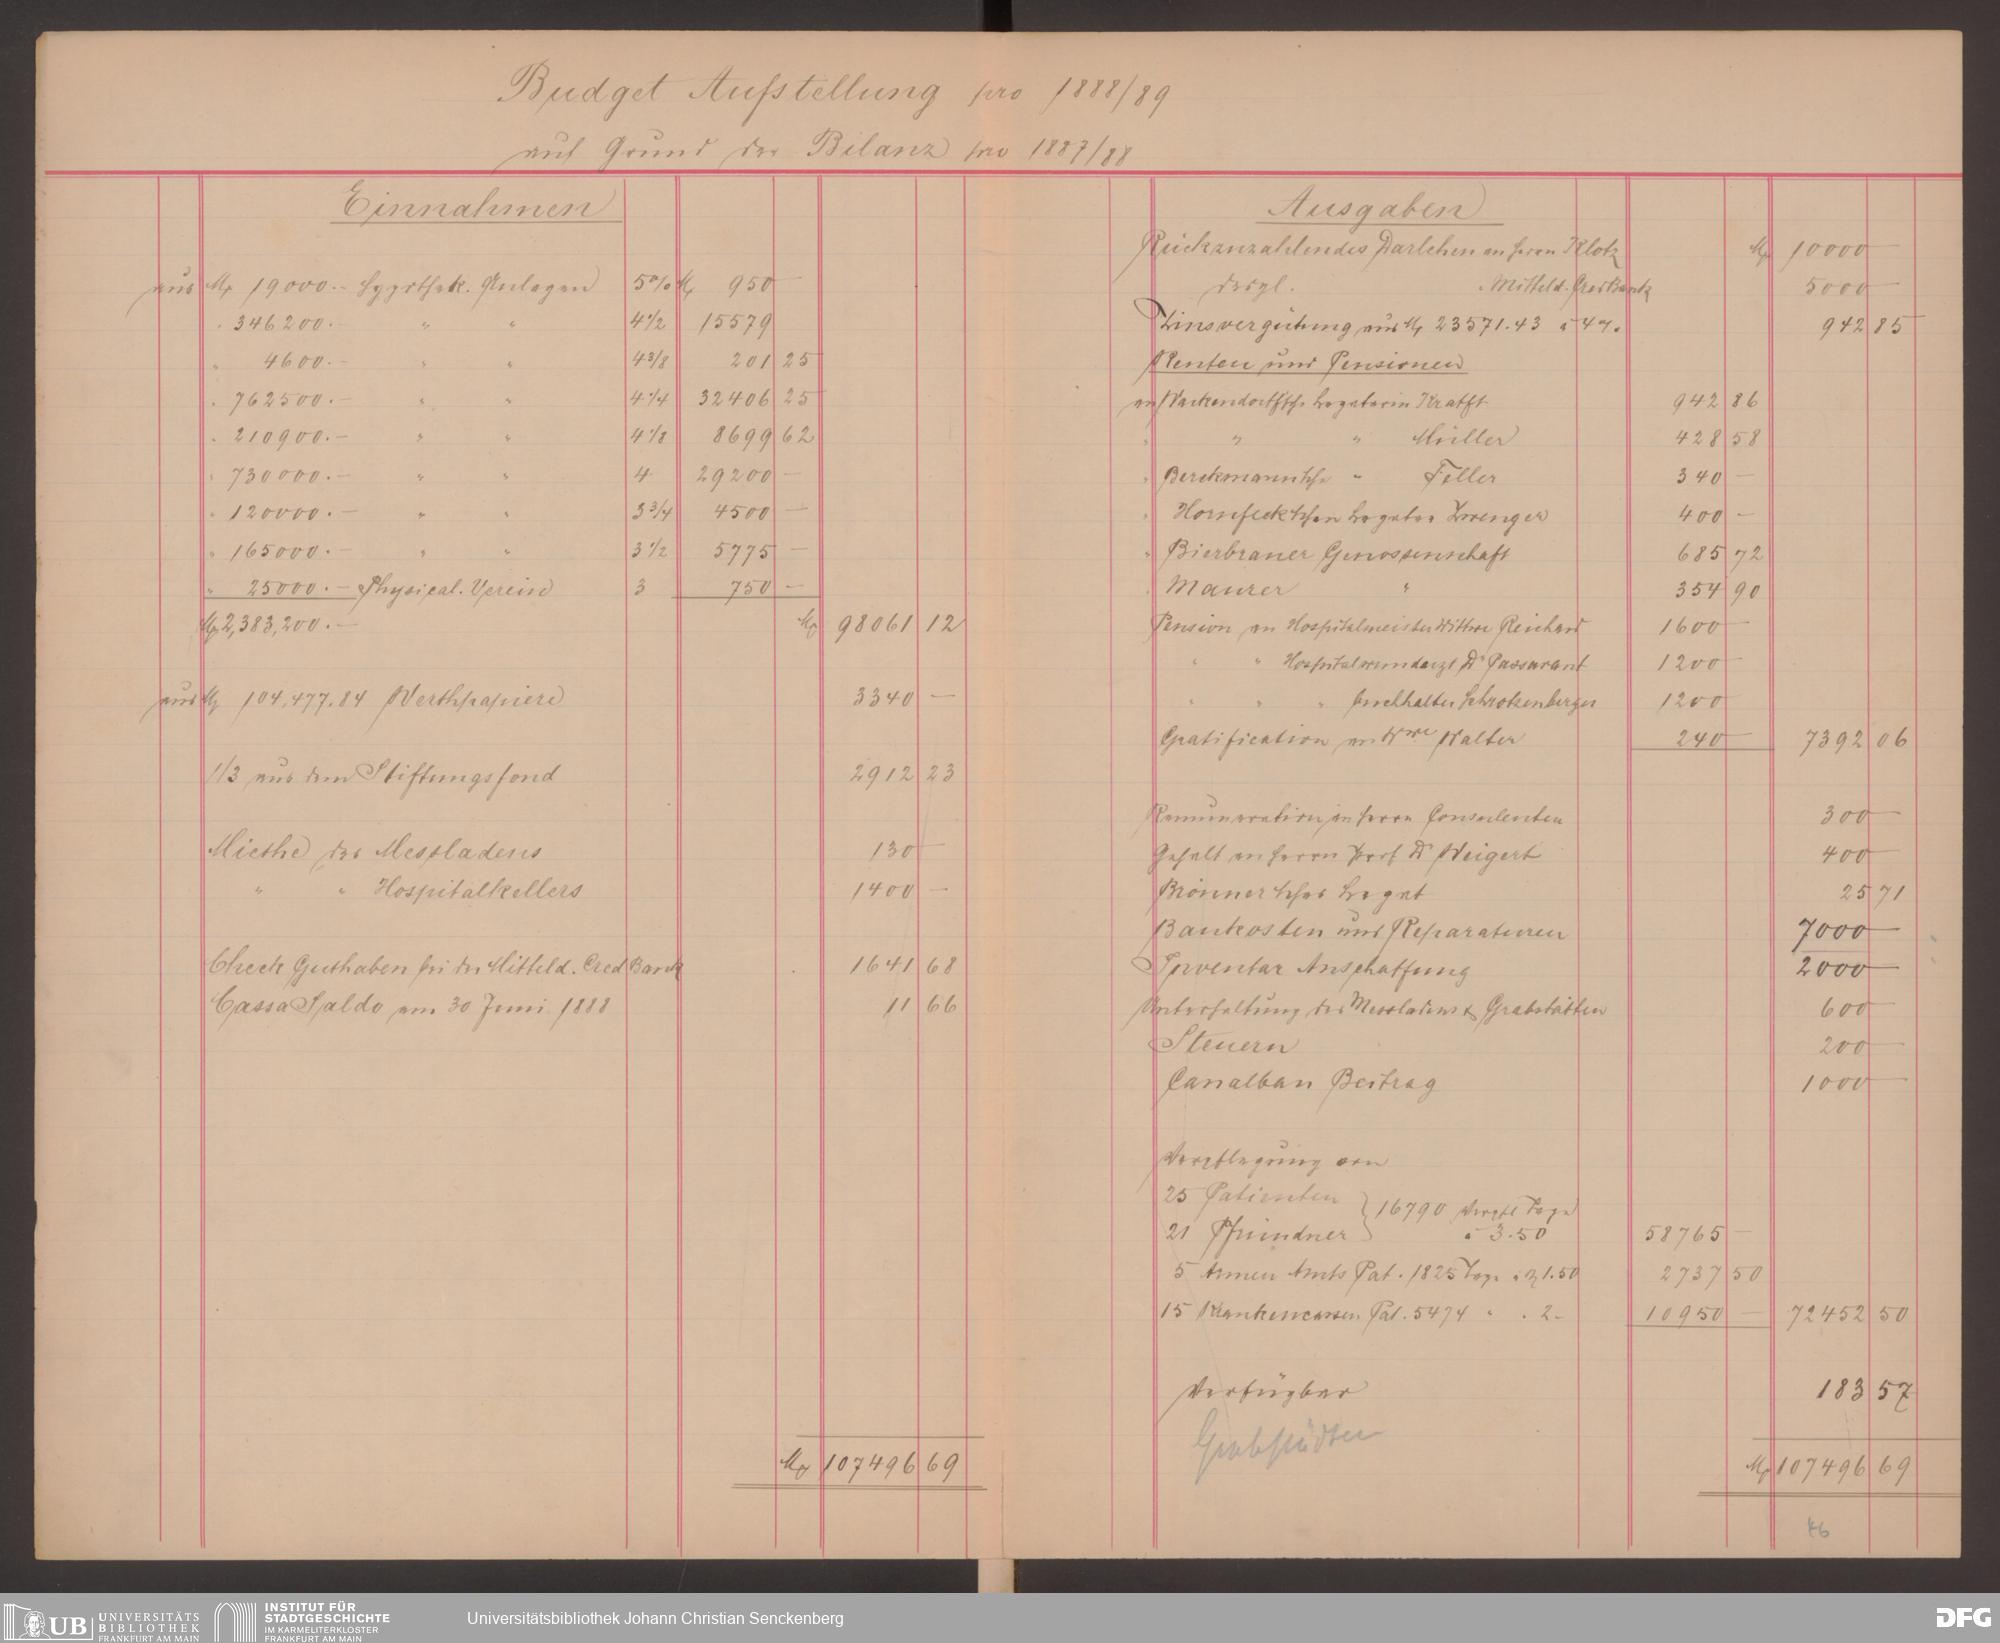 Budget Aufstellung pro 1888/89
auf Grund der Bilanz pro 1887/88
Einnahmen
aus M 19000.- Hypothek. Anlagen 5% M 950 —
" 346200.- " " 4 1/2 15579
" 4600.- " " 4 3/8 201 25
" 762500.- " " 4 1/4 32406 25
" 210900.- " " 4 1/8 8699 62
" 730000.- " " 4 29200 —
" 120000.- " " 3 3/4 4500 —
" 165000.- " " 3 1/2 5775 —
" 25000.- Physical. Verein 3 750 —
M 2,383,200.- M 98061 12
aus M 104,477.84 Werthpapiere 3340 —
1/3 aus dem Stiftungsfond 2912 23
Miethe des Messladens 130 —
" " Hospitalkellers 1400 —
Check Guthaben bei der Mitteld. Cred Bank 1641 68
Cassa Saldo am 30 Juni 1888 11 66
M 107496 69
Ausgaben
Rückzuzahlendes Darlehen an Herrn Klotz M 10000 —
desgl. " Mitteld. Cred Bank 5000 —
Zinsvergütung aus M 23571.43 à 4%. 942 85
Renten und Pensionen
an Legatarin Krafft 942 86
" " " Müller 428 58
" Berckmann'sche " Feller 340 —
" Hornfeck'schen Legatar Zwenger 400 —
" Bierbrauer Genossenschaft 685 72
" Maurer " 354 90
Pension an Hospitalmeister Wittwe Reichard 1600 —
" " Hospitalwundarzt Dr Passavant 1200 —
" " " Buchhalter Schrotzenberger 1200
Gratification an Wwe Walter 240 — 7392 06
Remuneration an Herrn Consulenten 300 —
Gehalt an Herrn Prof Dr Weigert 400 —
Brönner'sches Legat 25 71
Baukosten und Reparaturen 7000 —
Inventar Anschaffung 2000 —
Unterhaltung des Messladens & Grabstätten 600 —
Steuern 200 —
Canalbau Beitrag 1000 —
Verpflegung von
25 Patienten } 16790 Verpfl Tage
21 Pfründner à 3.50 58765 —
5 Armen Amts Pat. 1825 Tage à M 1.50 2737 50
15 Krankencassen Pat. 5474 " " 2.- 10950 — 72452 50
Verfügbar 183 57
Grabstädten
M 107496 69
46
UB UNIVERSITÄTS
BIBLIOTHEK
FRANKFURT AM MAIN
INSTITUT FÜR
STADTGESCHICHTE
IM KARMELITERKLOSTER
FRANKFURT AM MAIN
Universitätsbibliothek Johann Christian Senckenberg
DFG